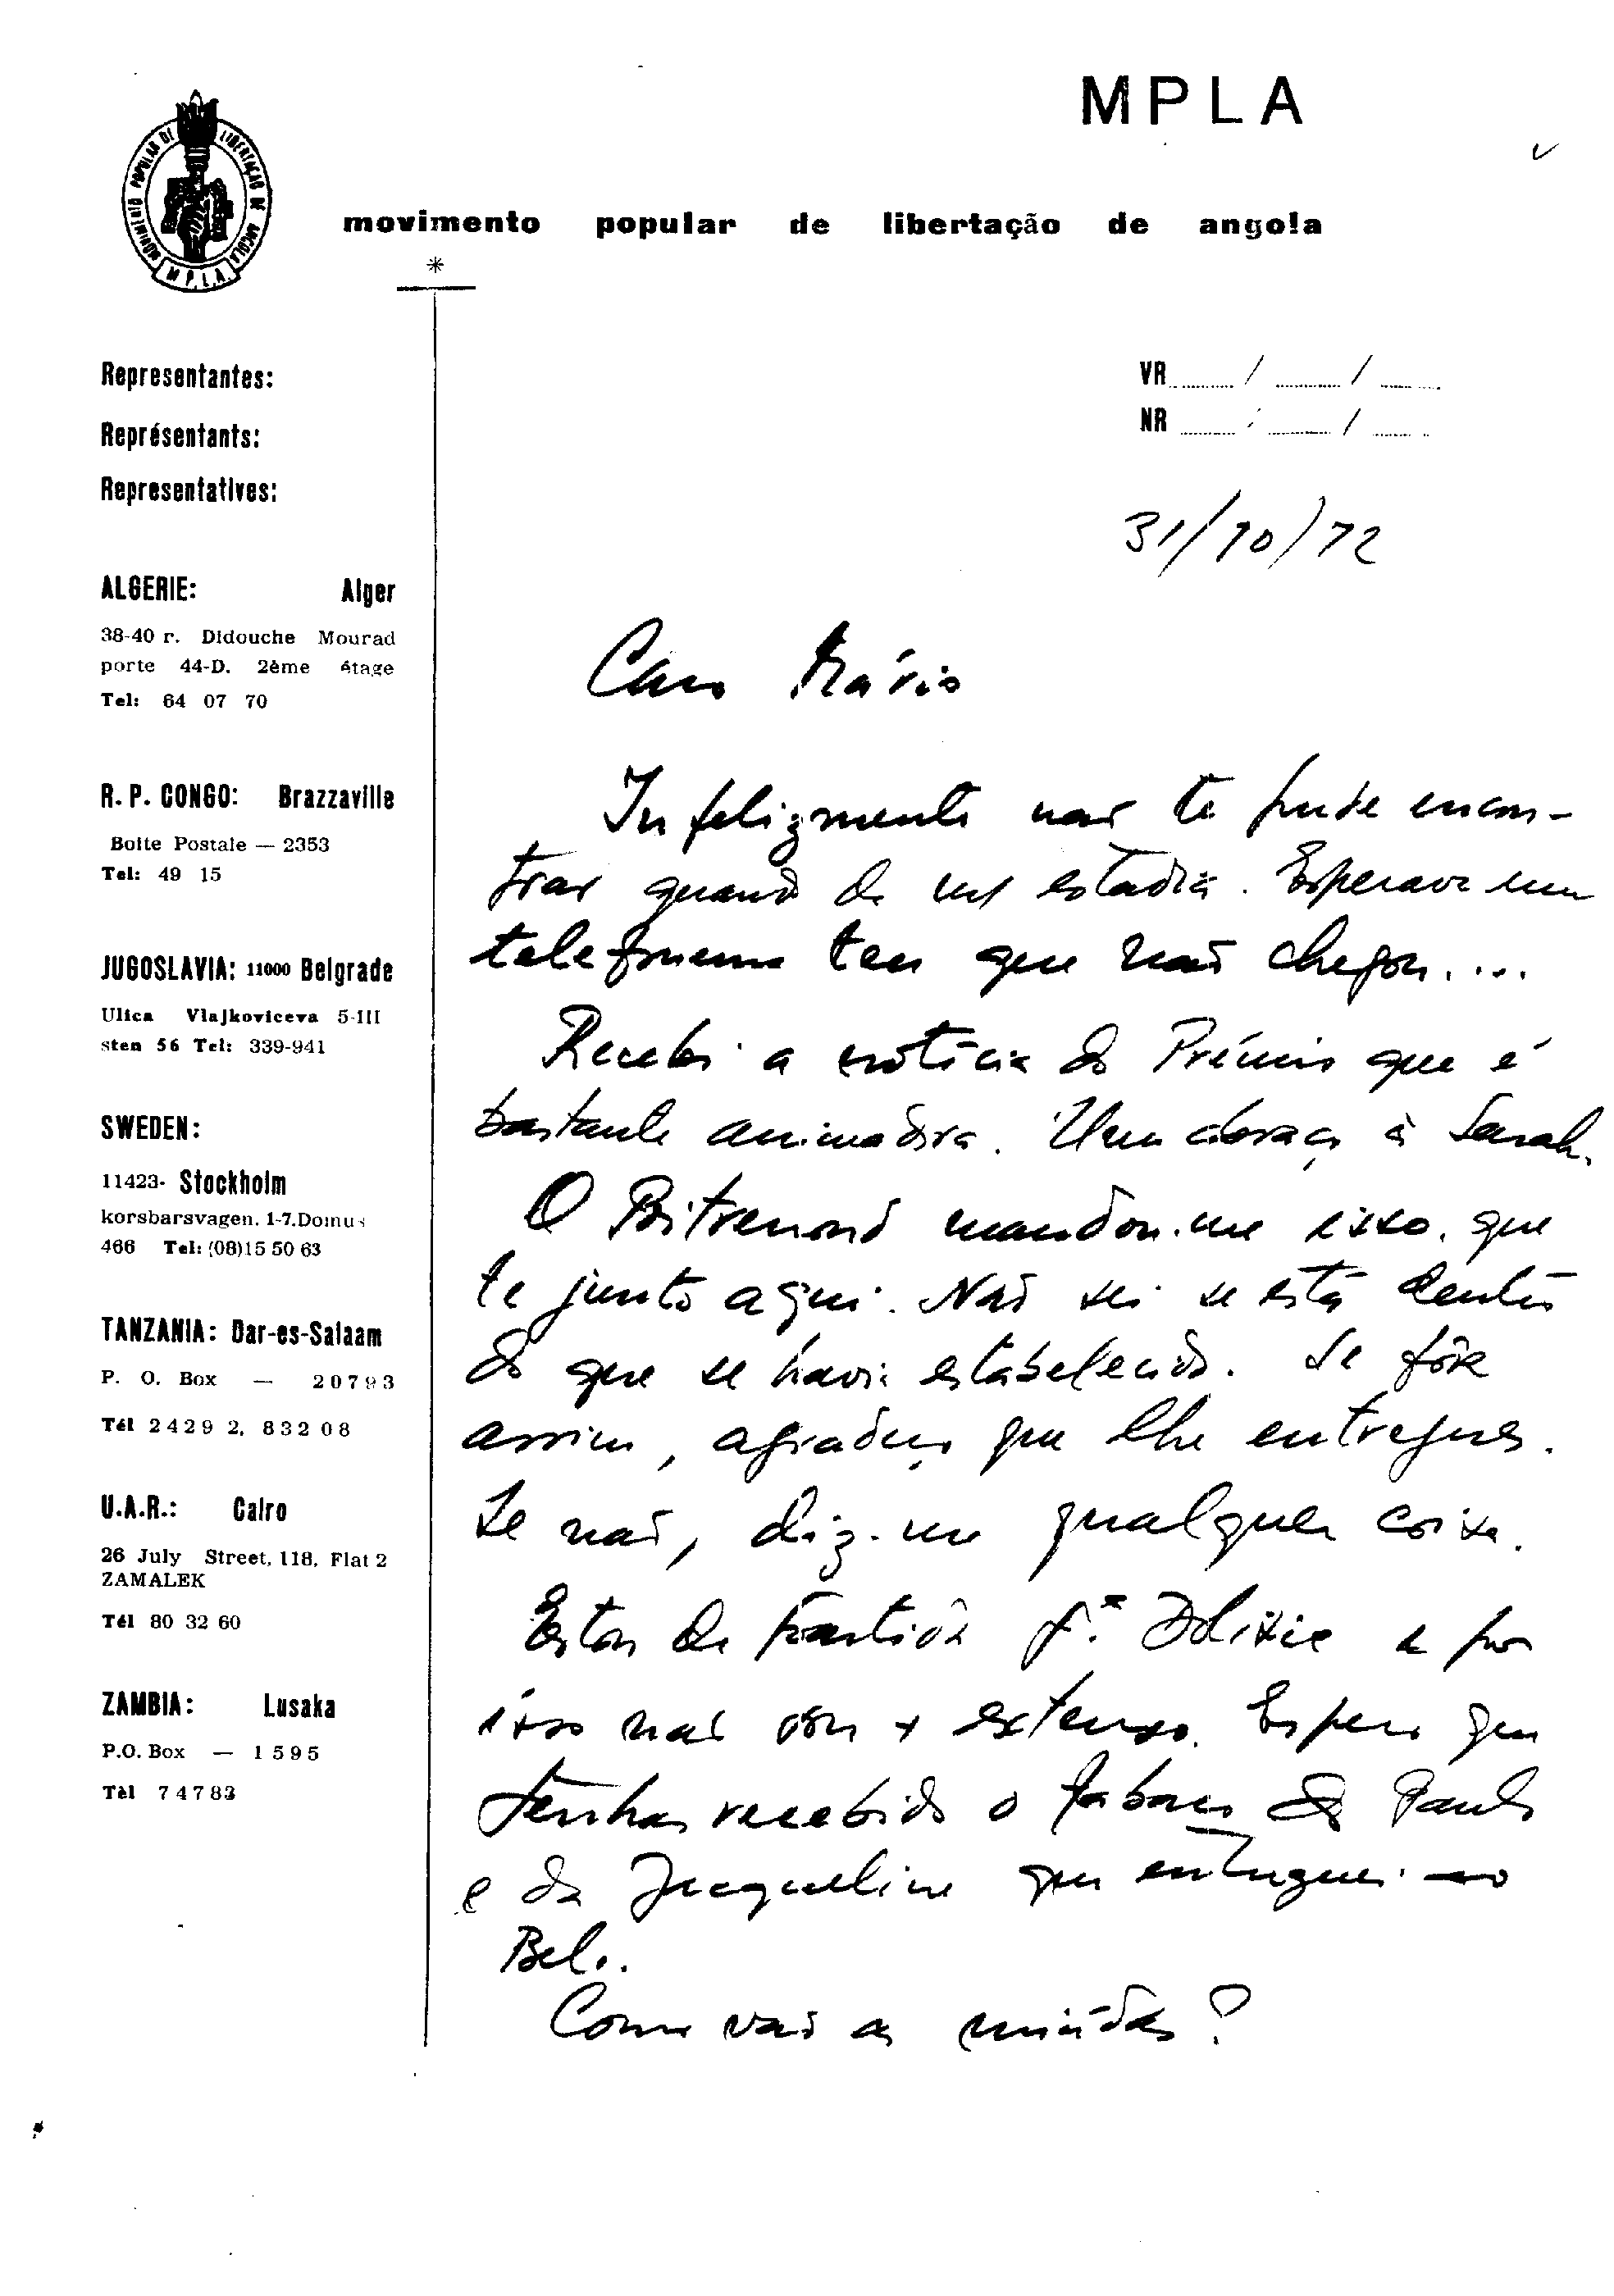 MPLA
MOVIMENTO POPULAR DE LIBERTAÇÃO DE ANGOLA
M.P.L.A.
movimento popular de libertação de angola
*
Representantes:
Représentants:
Representatives:
ALGERIE: Alger
38-40 r. Didouche Mourad
porte 44-D. 2ème étage
Tel: 64 07 70
R.P. CONGO: Brazzaville
Boite Postale — 2353
Tel: 49 15
JUGOSLAVIA: 11000 Belgrade
Ulica Vlajkoviceva 5-III
sten 56 Tel: 339-941
SWEDEN:
11423- Stockholm
korsbarsvagen. 1-7.Domus
466 Tel: (08)15 50 63
TANZANIA: Dar-es-Salaam
P. O. Box — 20793
Tél 24292, 83208
U.A.R.: Cairo
26 July Street, 118, Flat 2
ZAMALEK
Tél 80 32 60
ZAMBIA: Lusaka
P.O. Box — 1595
Tèl 74783
VR / /
NR / /
31/10/72
Caro Mário
Infelizmente não te pude encon-
trar quando da estadia. Esperava um
telefonema teu que não chegou....
Recebi a notícia do Prémio que é
bastante animadora. Um abraço à Sarah.
O mandou-me isso, que
te junto aqui. Não sei se está dentro
do que se havia estabelecido. Se fôr
assim, agradeço que lhe entregues.
Se não, diz-me qualquer coisa.
Estou de partida p.ª e por
isso não vou + extenso. Espero que
tenhas recebido o tabaco do Paulo
e da Jacqueline que entreguei ao
Bel..
Como vão as miúdas?